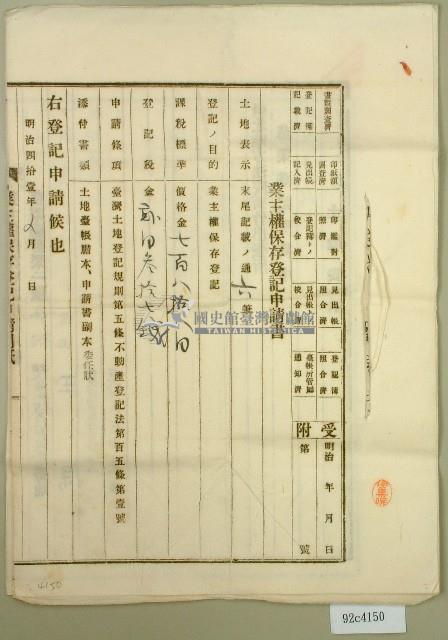 書類調査濟
登記簿記載濟
印紙額調査濟
見出帳記入濟
印鑑對照濟
登記簿トノ校合濟
見出帳照合濟
見出帳校合濟
登記簿照合濟
通知濟
受附
明治 年 月 日
第 號
業主權保存登記申請書
土地表示 末尾記載ノ通 六筆
登記ノ目的 業主權保存登記
課稅標準 價格金七百八拾
登記稅 金
申請條項 臺灣土地登記規則第五條不動產登記法第百五條第壹號
添付書類 土地臺帳謄本、申請書副本 委任狀
右登記申請候也
明治四拾壹年 月 日
國史館臺灣文獻館
TAIWAN HISTORICA
4150
92c4150